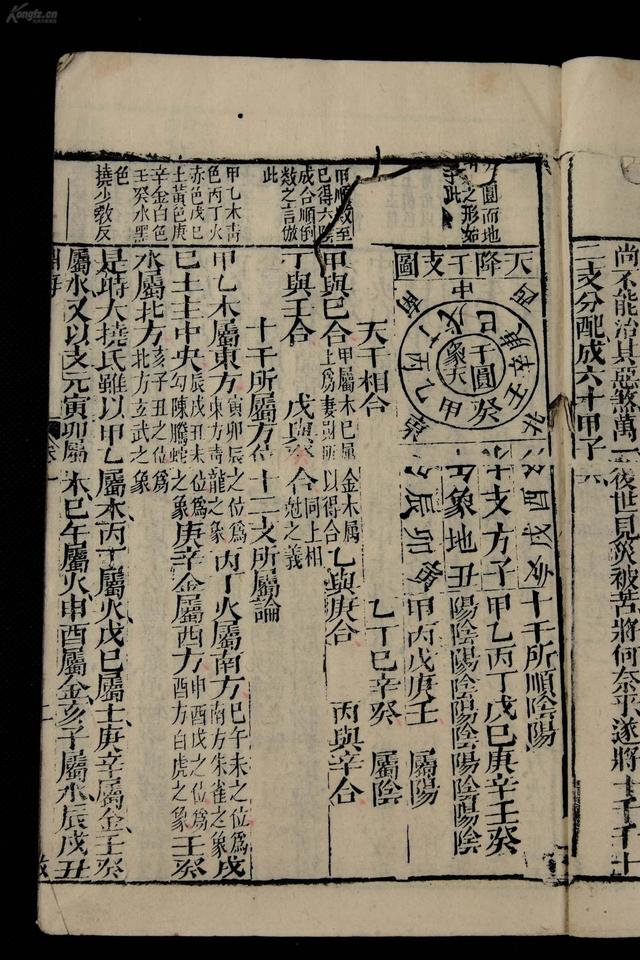 尚不能治其惡煞萬一後世見災被苦將何奈乎遂將十干十
二支分配成六十甲子
圓而地
之形如
此
甲順數至
巳得六
成合順倒
數之言倣
此
甲乙木青
色丙丁火
赤色戊巳
土黃色庚
辛金白色
壬癸水黑
色
撓少教反
天降干支圖
干圓象天
十支方
象地
十干所順陰陽
甲乙丙丁戊巳庚辛壬癸
陽陰陽陰陽陰陽陰陽陰
甲丙戊庚壬 屬陽
乙丁巳辛癸 屬陰
天干相合
甲與巳合 甲屬木巳屬土爲妻財所以得合 乙與庚合 丙與辛合
丁與壬合 戊與癸合 同上相尅之義
十干所屬方位 十二支所屬論
甲乙木屬東方 寅卯辰之位爲東方青龍之象 丙丁火屬南方 巳午未之位爲南方朱雀之象 戊
巳土主中央 辰戌丑未位爲勾陳騰蛇之象 庚辛金屬西方 申酉戌之位爲西方白虎之象 壬癸
水屬北方 亥子丑之位爲北方玄武之象
是時大撓氏雖以甲乙屬木丙丁屬火戊巳屬土庚辛屬金壬癸
屬水又以支元寅卯屬木巳午屬火申酉屬金亥子屬水辰戌丑
淵海
卷一